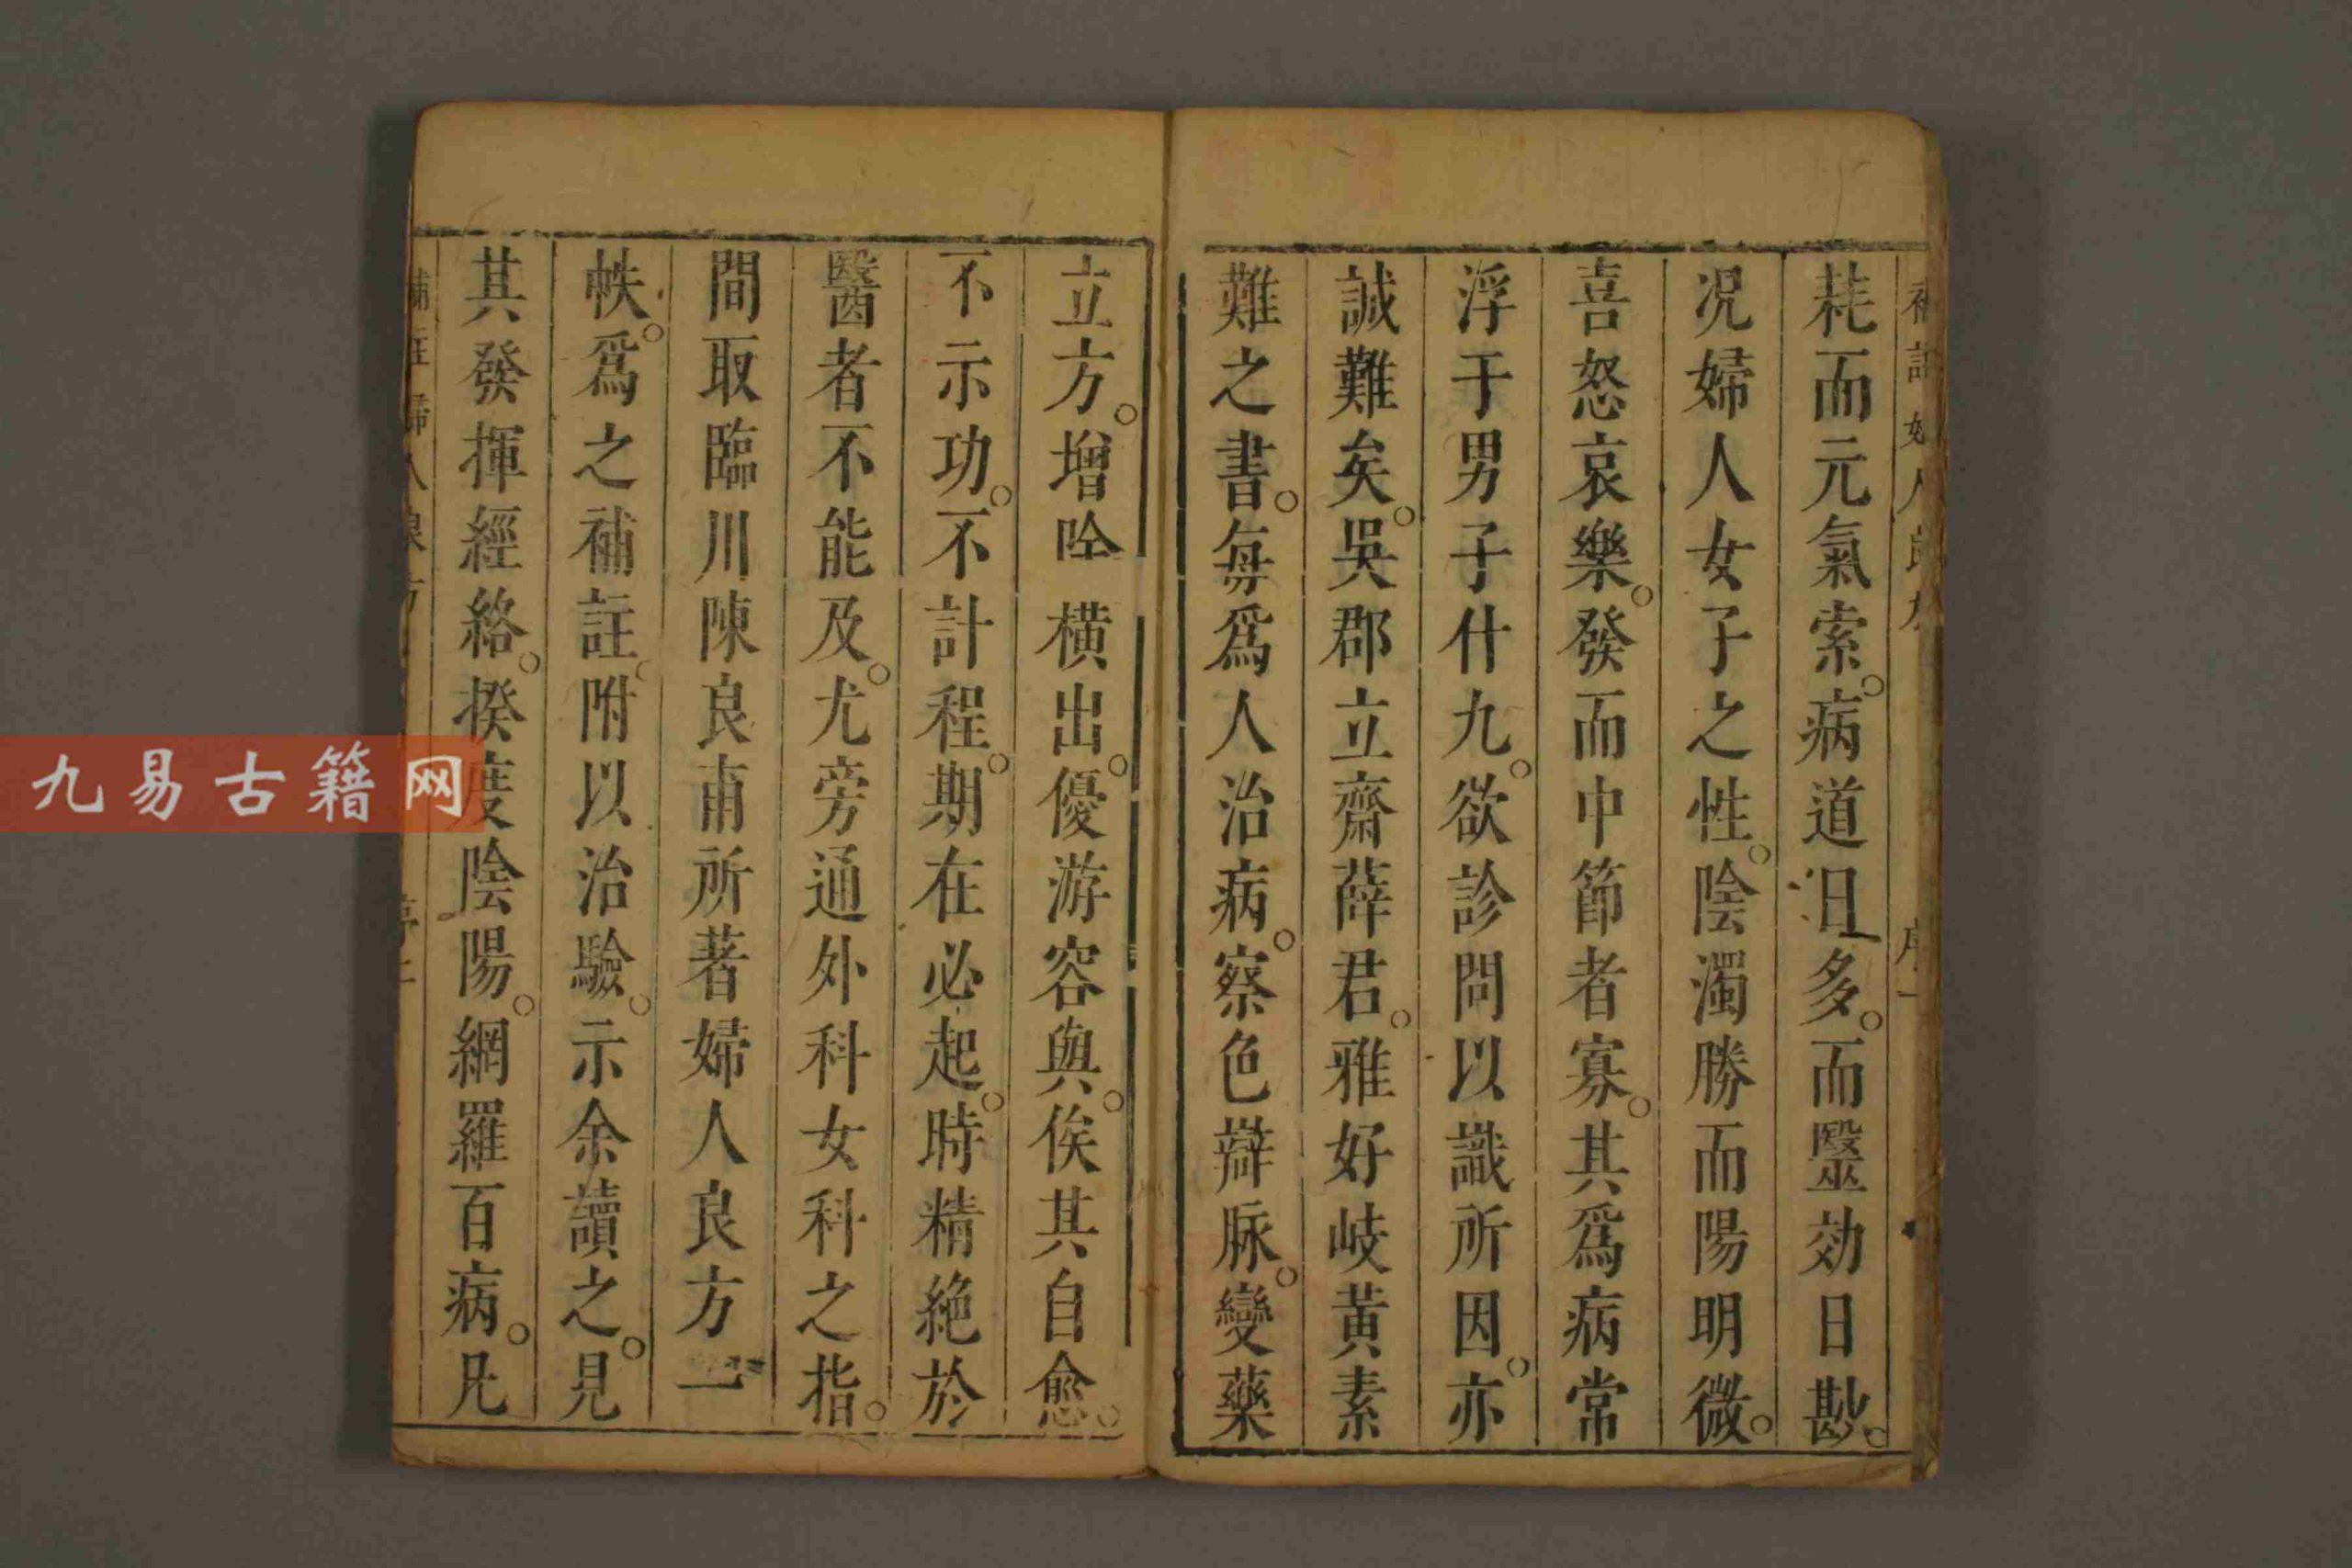 耗而元氣索。病道日多。而毉効日尠。
况婦人女子之性。陰濁勝而陽明微。
喜怒哀樂。發而中節者寡。其爲病常
浮于男子什九。欲診問以識所因。亦
誠難矣。吳郡立齋薛君。雅好岐黃素
難之書。每爲人治病。察色辯脉。變藥
立方。增吟橫出。優游容與。俟其自愈。
不示功。不計程。期在必起。時精絶於
醫者不能及。尤旁通外科女科之指。
間取臨川陳良甫所著婦人良方一
帙。爲之補註。附以治驗。示余讀之。見
其發揮經絡。揆度陰陽。網羅百病。凡
九易古籍网